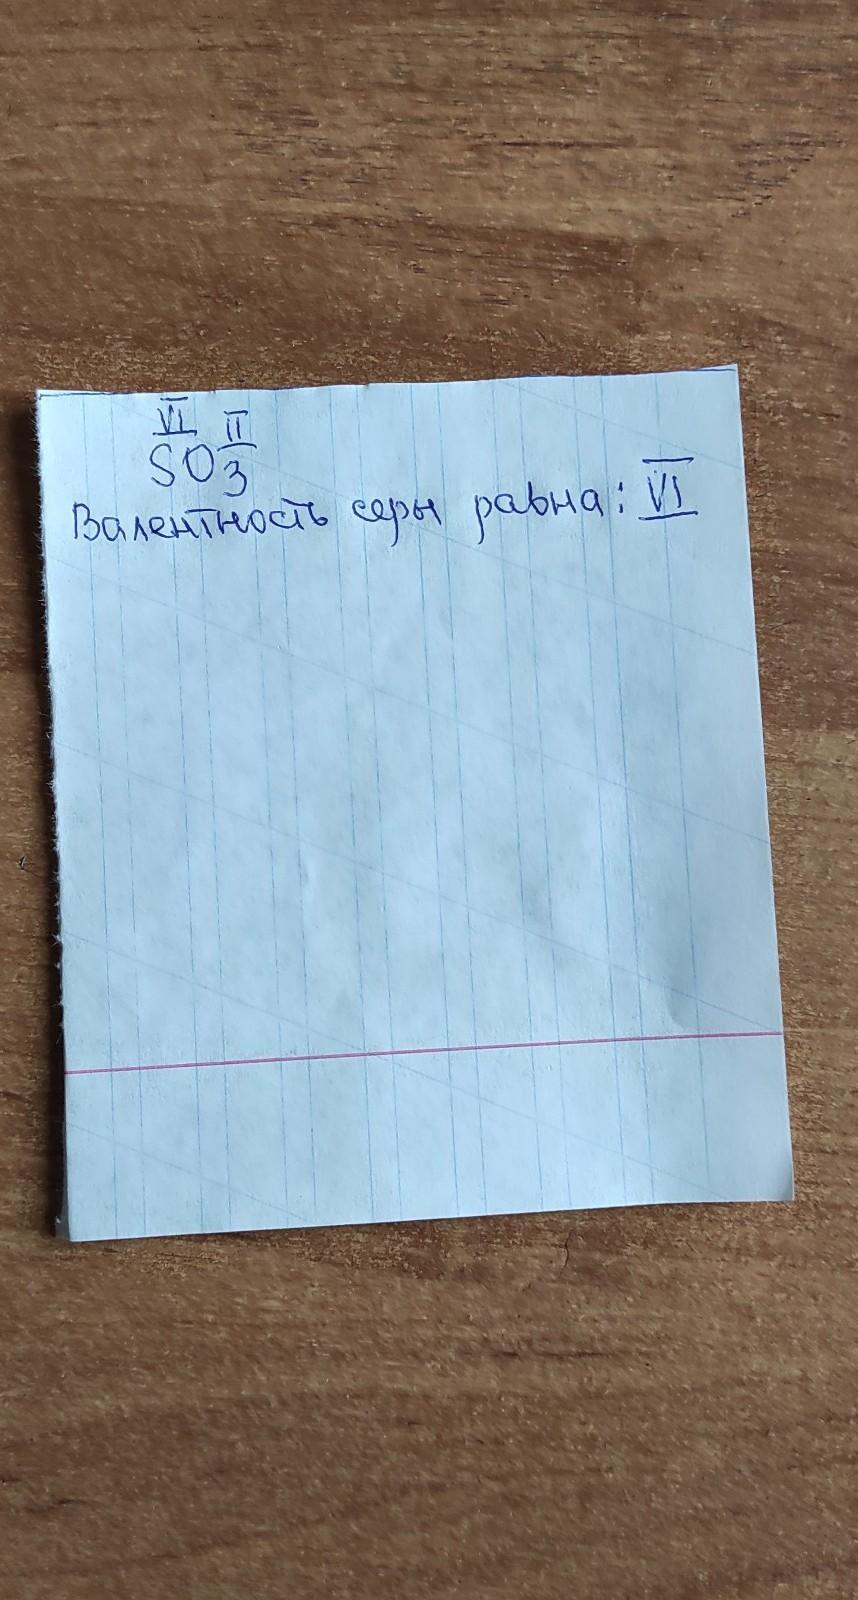 VI II
SO3
Валентность серы равна: VI